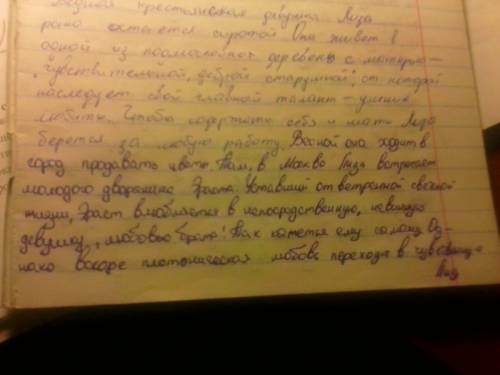 Бедная крестьянская девушка Лиза
рано остаётся сиротой. Она живет в
одной из подмосковных деревень с матерью –
"чувствительной, доброй старушкой", от которой
наследует свой главный талант – умение
любить. Чтобы содержать себя и мать Лиза
берется за любую работу. Весной она ходит в
город продавать цветы. Там, в Москве Лиза встречает
молодого дворянина Эраста. Уставший от ветренной светской
жизни, Эраст влюбляется в непосредственную, невинную
девушку, "любовью брата". Так кажется ему самому. Од-
нако вскоре платоническая любовь переходит в чувственную
Лиз